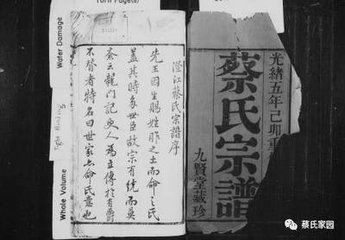 Water Damage
Tight Binding
Whole Volume
光緒五年己卯重
蔡氏宗譜
九賢堂藏珍
澄江蔡氏宗譜序
先王因生賜姓胙之土而命之氏
蓋其時多世臣故宗有統而
龍門記史人為立傳於有爵
不登者特名曰世家亦命氏意也
蔡氏家园